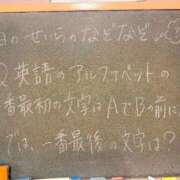 日のせいらのなぞなぞ
Q 英語のアルファベットの
番最初の文字はAでBの前に
では、一番最後の文字は?